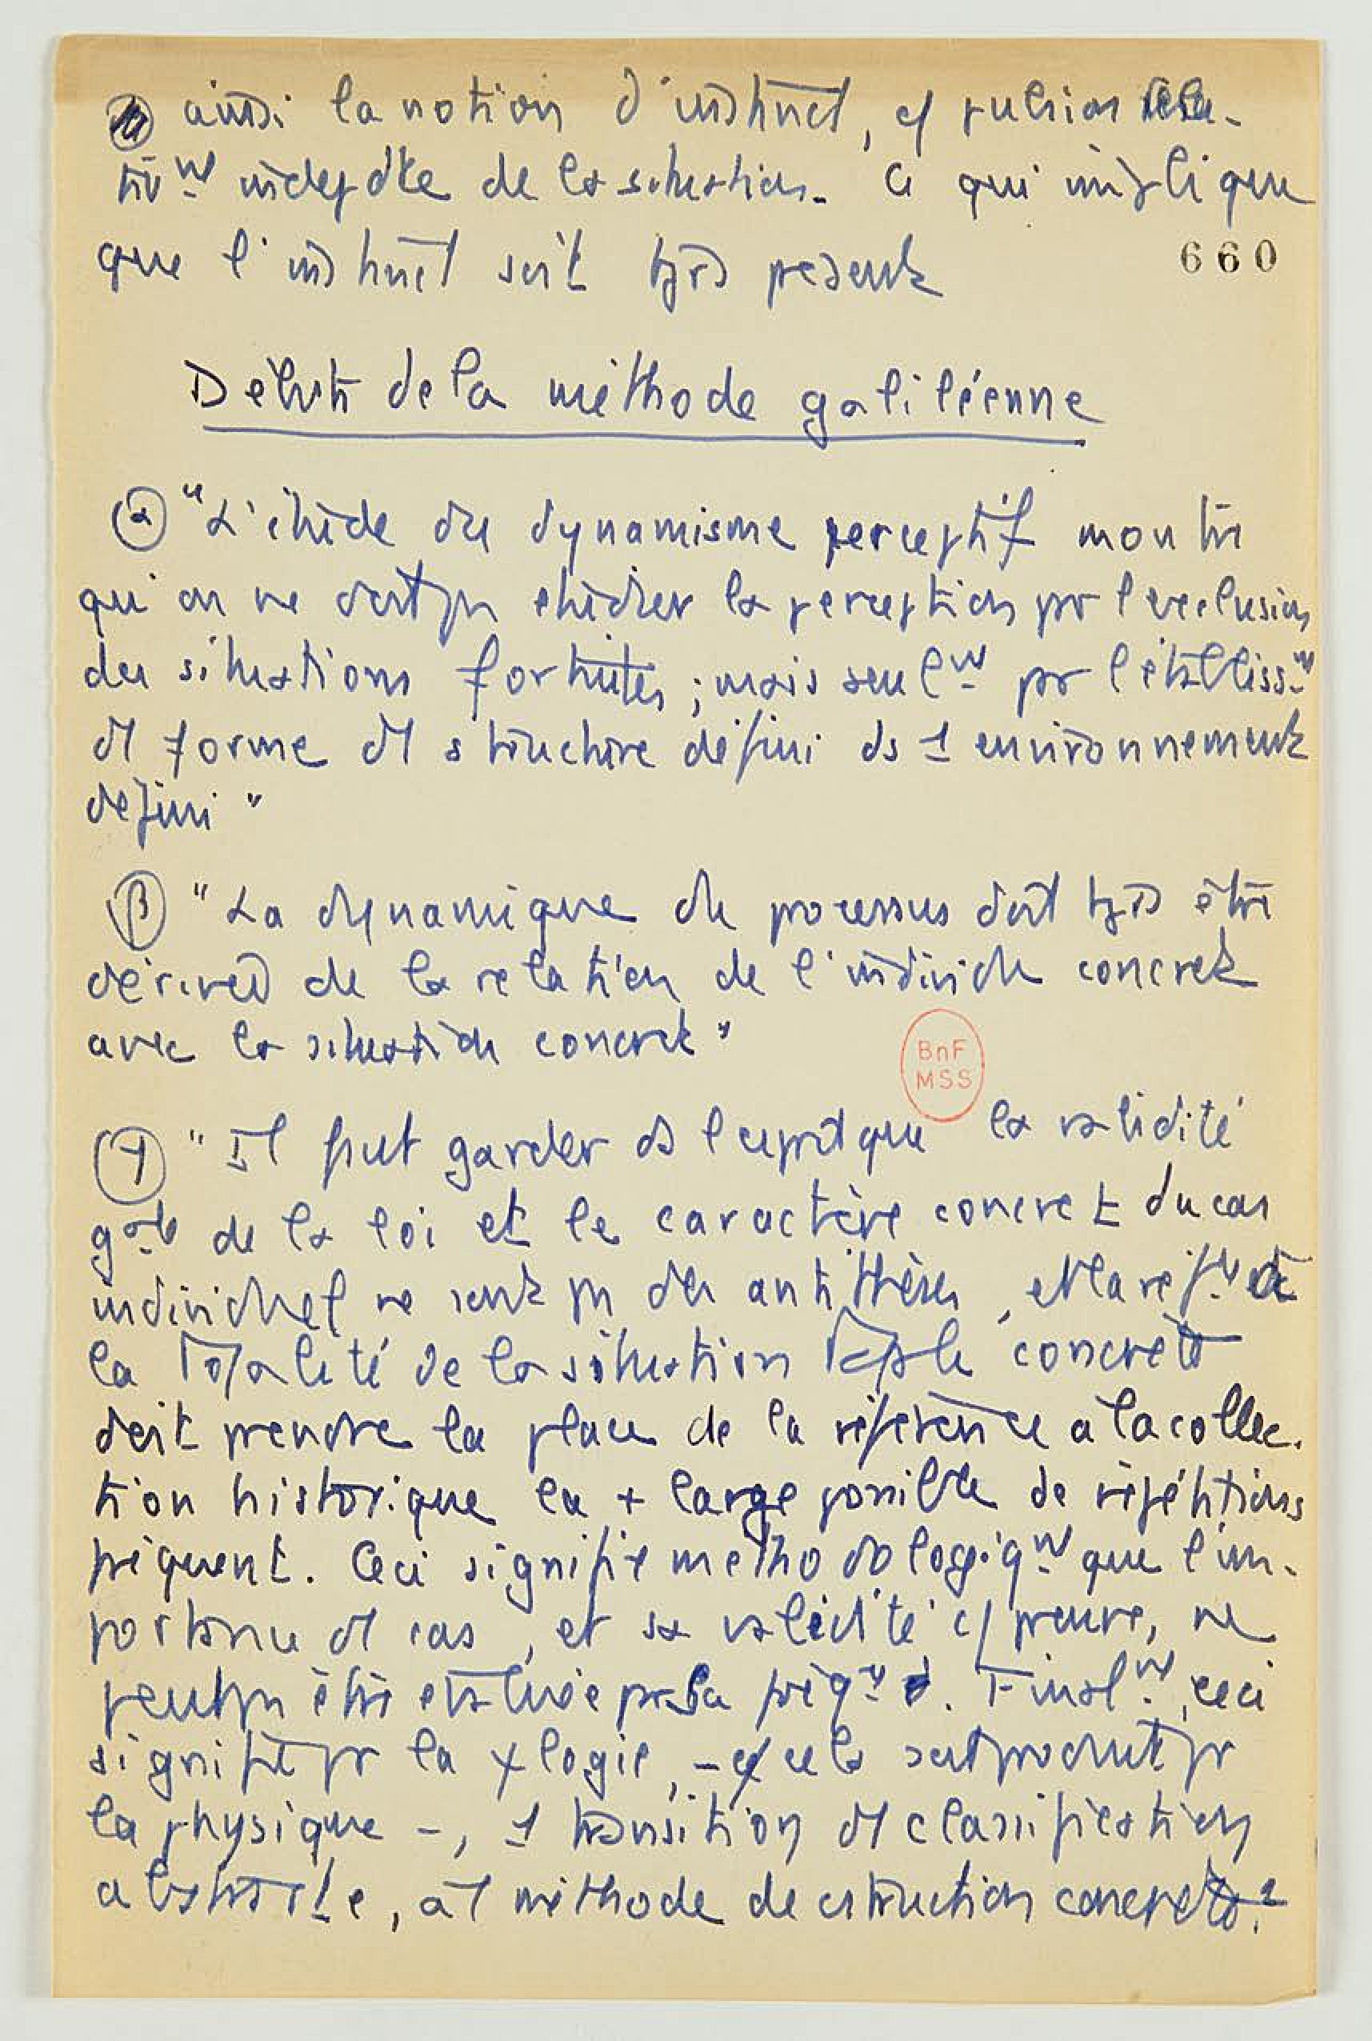 ainsi la notion d'instinct, c/ pulsion rela-
tivt indepdte de la situation. Ce qui implique
que l'instinct soit tjrs présent
660
Débuts de la méthode galiléenne
α "L'étude du dynamisme perceptif montre
qu'on ne doit pas étudier la perception par l'exclusion
des situations fortuites ; mais seult par l'établisst
d'1 forme d'1 structure défini ds 1 environnement
défini"
β "La dynamique du processus doit tjrs être
dérivée de la relation de l'individu concret
avec la situation concrète"
BnF
MSS
γ "Il faut garder ds l'esprit que la validité
gale de la loi et le caractère concret du cas
individuel ne sont pas des antithèses, et la réf. à
la totalité de la situation concrète
doit prendre la place de la référence à la collec-
tion historique la + large possible de répétitions
fréquent. Ceci signifie méthodologiqt que l'im-
portance d'1 cas, et sa validité c/ preuve, ne
peut pas être évaluée par sa fréq. Finalt, ceci
signifie pr la ψlogie, - c/ cela s'est produit pr
la physique -, 1 transition d'1 classification
abstraite, à 1 méthode de cstruction concrète."